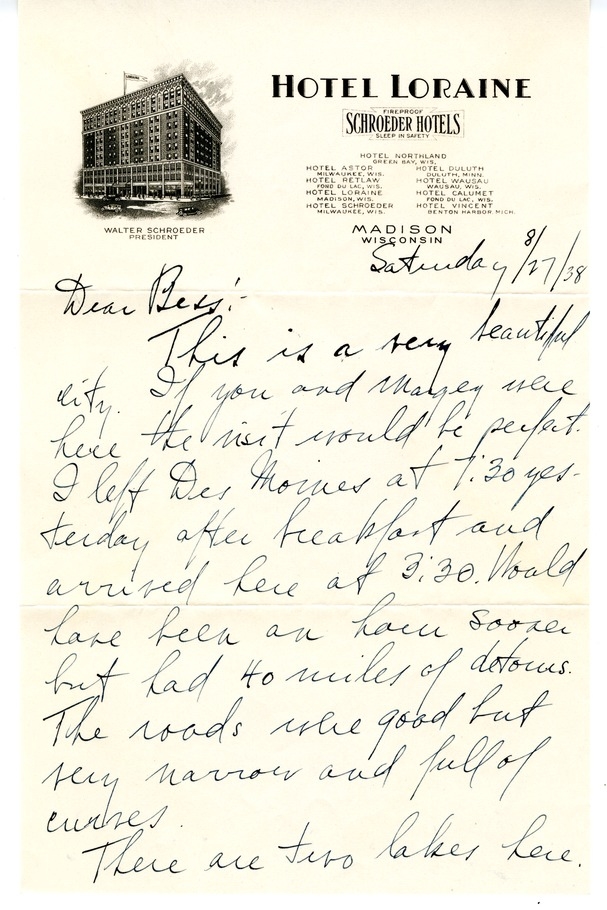 HOTEL LORAINE
FIREPROOF
SCHROEDER HOTELS
SLEEP IN SAFETY
HOTEL NORTHLAND
GREEN BAY, WIS.
HOTEL ASTOR HOTEL DULUTH
MILWAUKEE, WIS. DULUTH, MINN.
HOTEL RETLAW HOTEL WAUSAU
FOND DU LAC, WIS. WAUSAU, WIS.
HOTEL LORAINE HOTEL CALUMET
MADISON, WIS. FOND DU LAC, WIS.
HOTEL SCHROEDER HOTEL VINCENT
MILWAUKEE, WIS. BENTON HARBOR, MICH.
WALTER SCHROEDER
PRESIDENT
MADISON
WISCONSIN
Saturday 8/27/38
Dear Bess:-
This is a very beautiful
city. If you and Margey were
here the visit would be perfect.
I left Des Moines at 7:30 yes-
terday after breakfast and
arrived here at 3:30. Would
have been an hour sooner
but had 40 miles of detours.
The roads were good but
very narrow and full of
curves.
There are two lakes here.